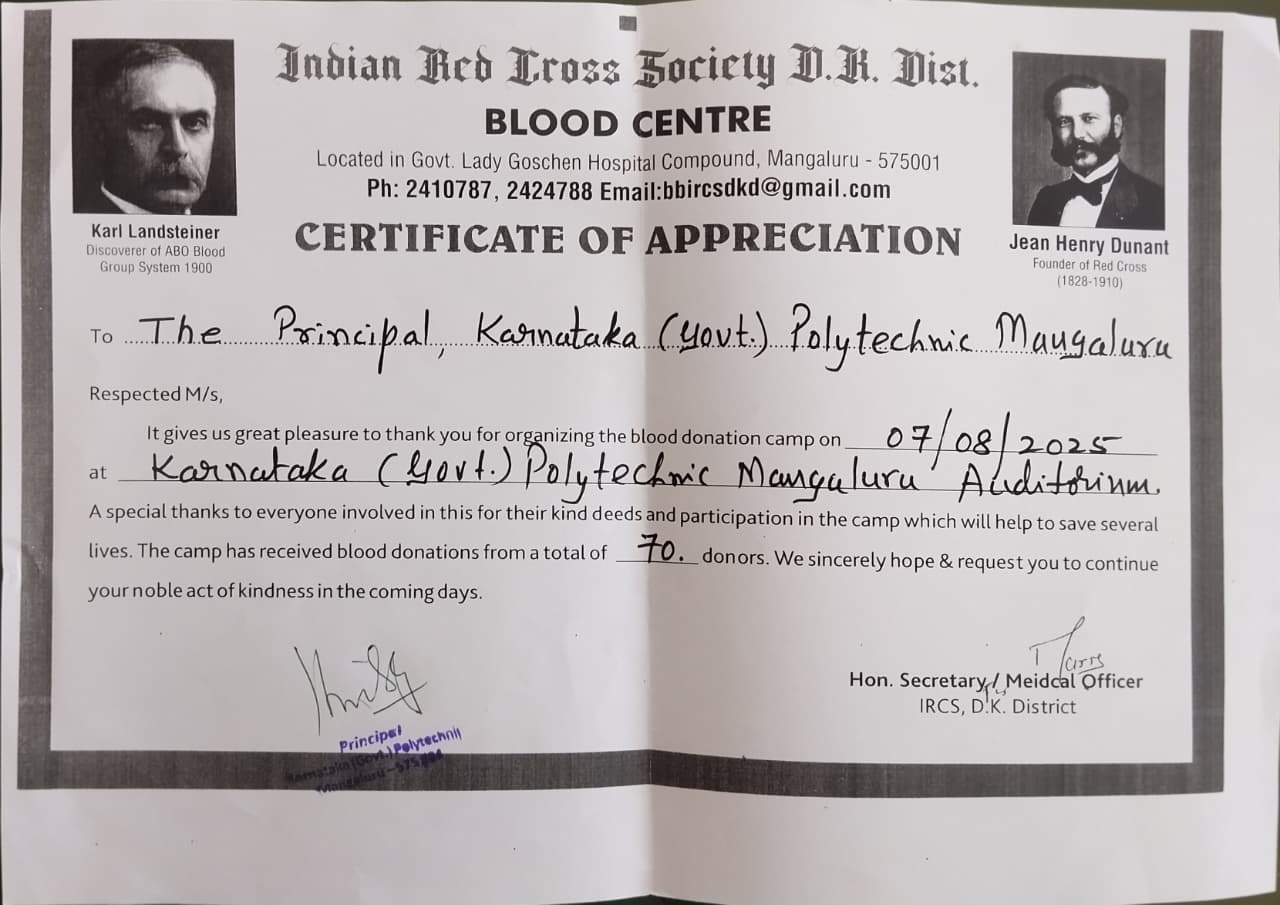 Indian Red Cross Society D.K. Dist.
BLOOD CENTRE
Located in Govt. Lady Goschen Hospital Compound, Mangaluru - 575001
Ph: 2410787, 2424788 Email:bbircsdkd@gmail.com
CERTIFICATE OF APPRECIATION
Karl Landsteiner
Discoverer of ABO Blood
Group System 1900
Jean Henry Dunant
Founder of Red Cross
(1828-1910)
To The Principal, Karnataka (Govt.) Polytechnic Mangaluru
Respected M/s,
It gives us great pleasure to thank you for organizing the blood donation camp on 07/08/2025
at Karnataka (Govt.) Polytechnic Mangaluru Auditorium.
A special thanks to everyone involved in this for their kind deeds and participation in the camp which will help to save several
lives. The camp has received blood donations from a total of 70. donors. We sincerely hope & request you to continue
your noble act of kindness in the coming days.
Hon. Secretary / Meidcal Officer
IRCS, D.K. District
Principal
Karnataka (Govt.) Polytechnic
Mangaluru - 575